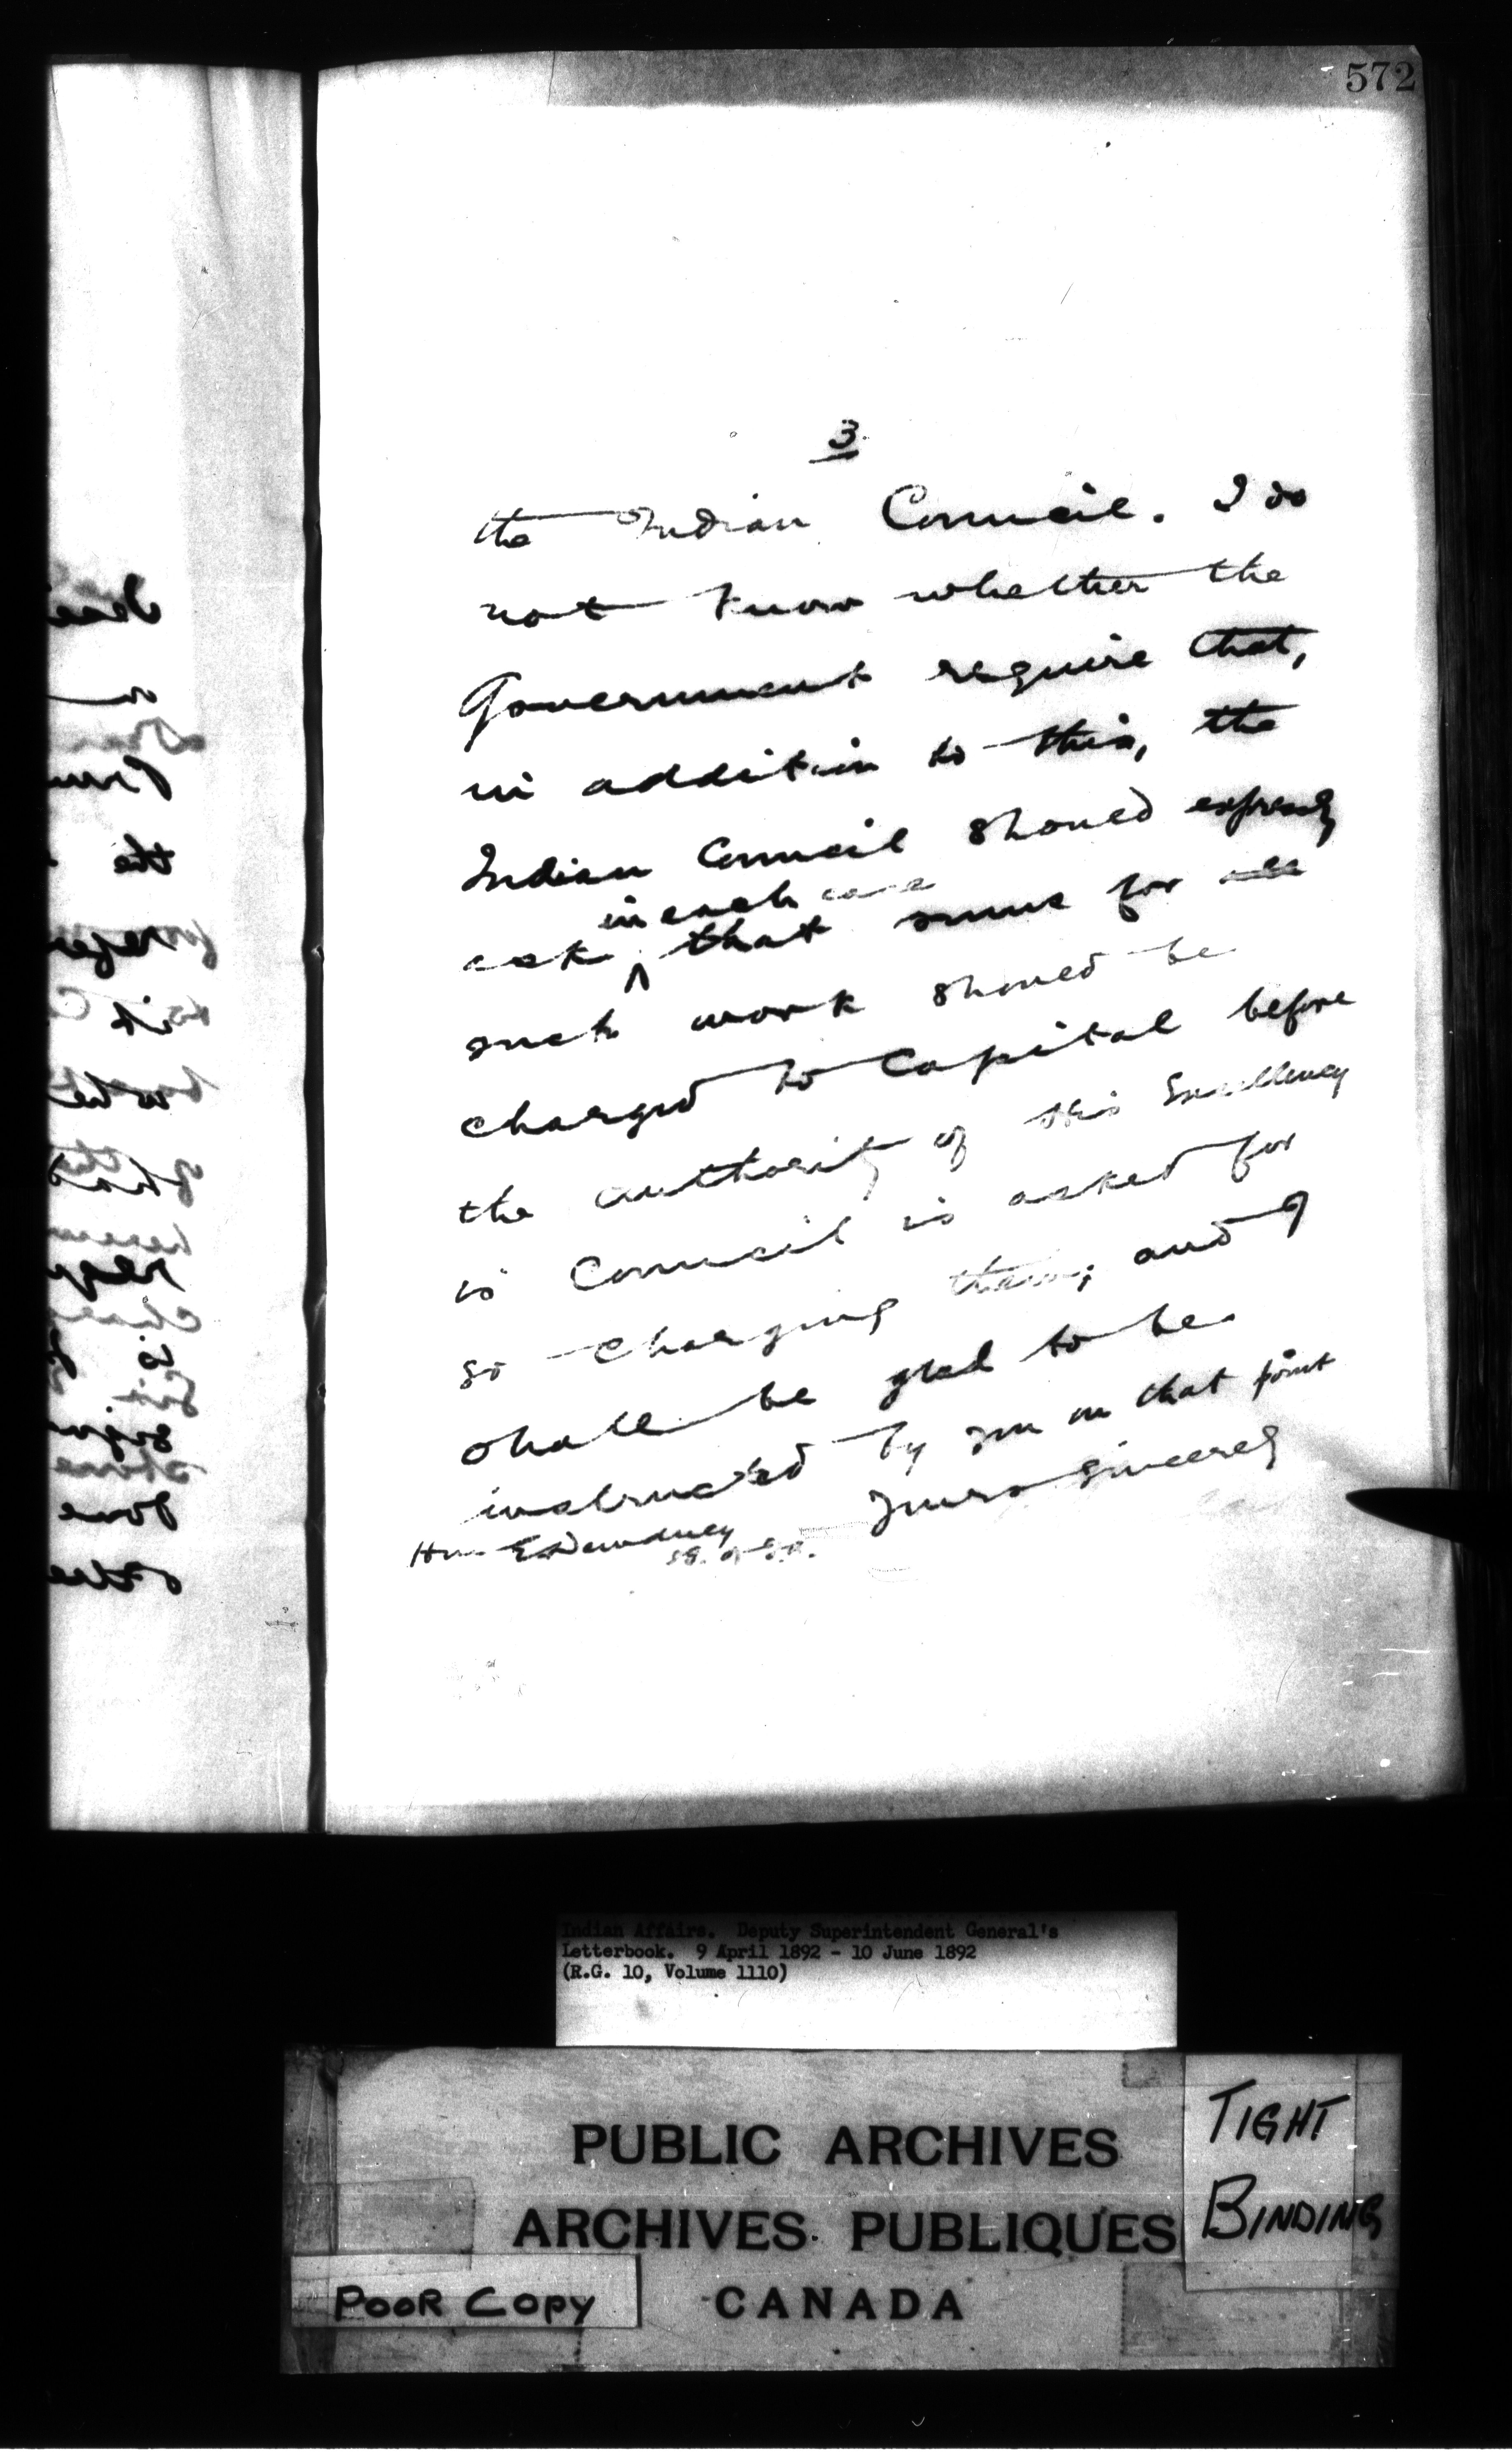 572
3
the Indian Council. I do
not know whether the
Government require that,
in addition to this, the
Indian Council should expressly
in each case
ask ^ that sums for all
such work should be
charged to Capital before
the authority of His Excellency
in Council is asked for
so charging them; and I
shall be glad to be
instructed by you on that point
Yours sincerely
Hon. E. Dewdney
S.G. of I.A.
the
Indian Affairs. Deputy Superintendent General's
Letterbook. 9 April 1892 - 10 June 1892
(R.G. 10, Volume 1110)
PUBLIC ARCHIVES
ARCHIVES PUBLIQUES
CANADA
TIGHT
BINDING
POOR COPY